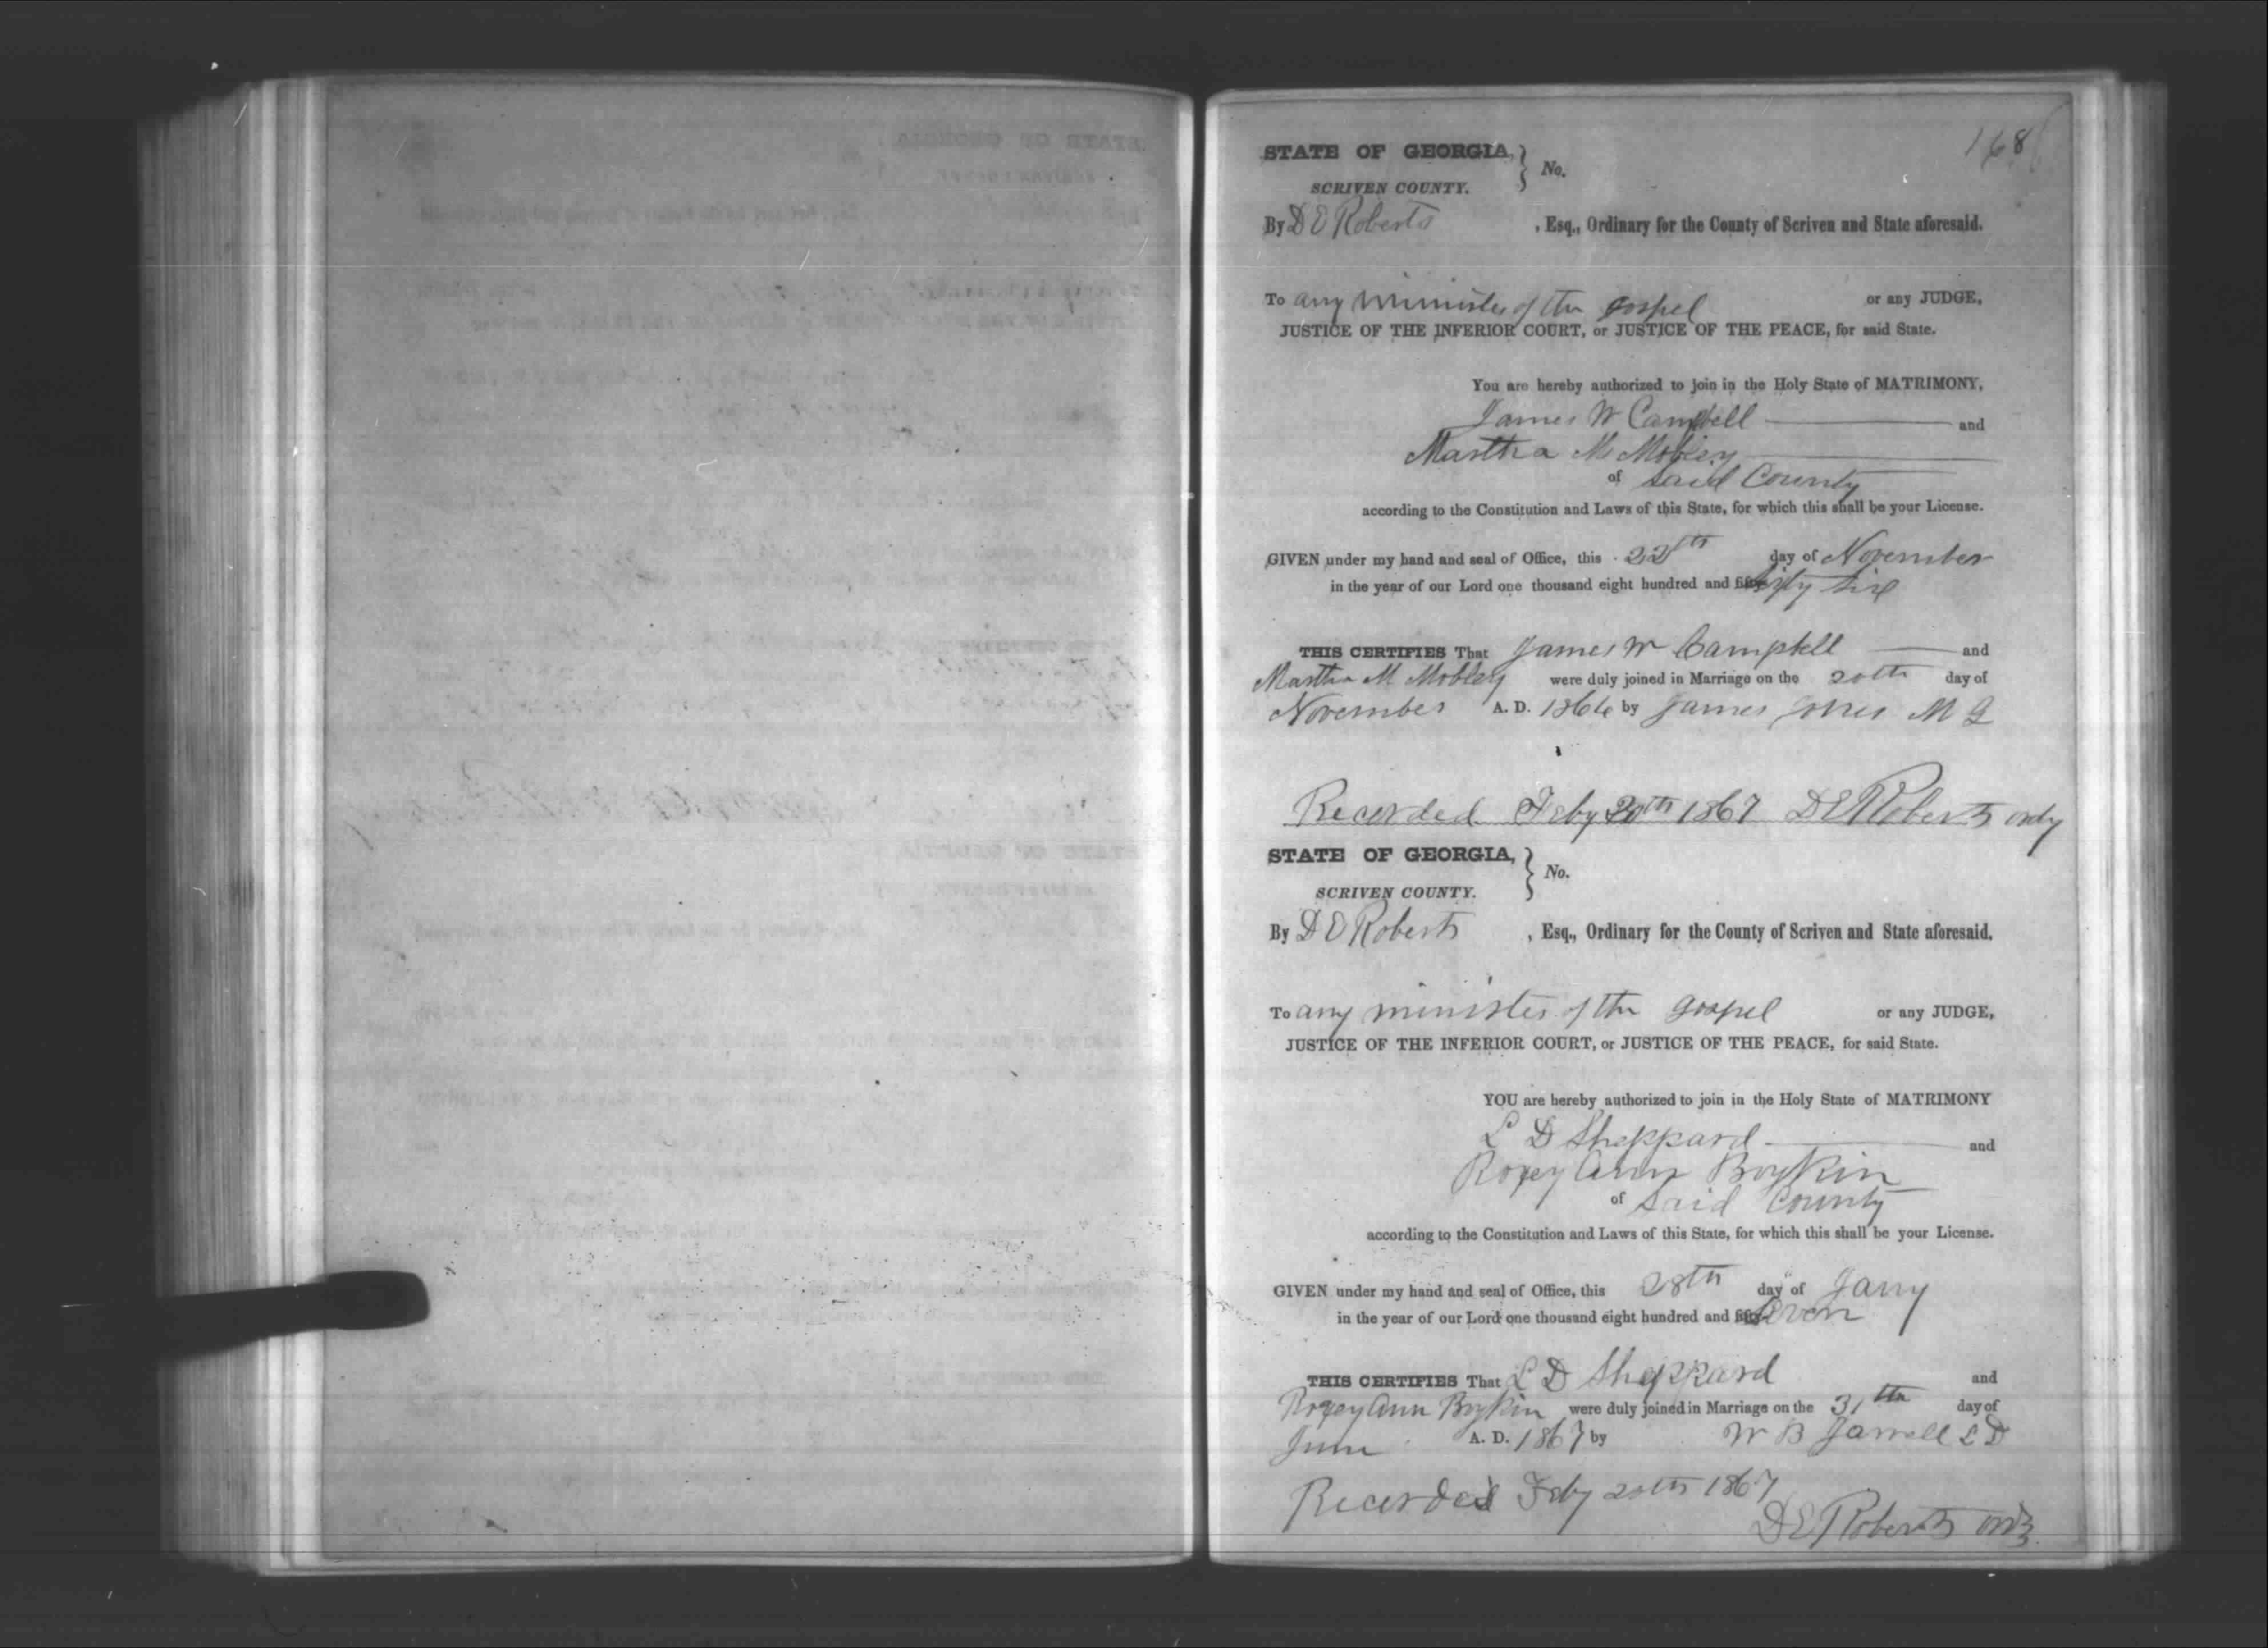 168
STATE OF GEORGIA, } No.
SCRIVEN COUNTY.
By D E Roberts , Esq., Ordinary for the County of Scriven and State aforesaid.
To any minister of the gospel or any JUDGE,
JUSTICE OF THE INFERIOR COURT, or JUSTICE OF THE PEACE, for said State.
You are hereby authorized to join in the Holy State of MATRIMONY,
James W Campbell and
Martha M Mobley
of Said County
according to the Constitution and Laws of this State, for which this shall be your License.
GIVEN under my hand and seal of Office, this 22th day of November
in the year of our Lord one thousand eight hundred and Sixty Six
THIS CERTIFIES That James W Campbell and
Martha M Mobley were duly joined in Marriage on the 20th day of
November A. D. 1866 by James Jones M G
Recorded Feby 20th 1867 D E Roberts ordy
STATE OF GEORGIA, } No.
SCRIVEN COUNTY.
By D E Roberts , Esq., Ordinary for the County of Scriven and State aforesaid.
To any minister of the gospel or any JUDGE,
JUSTICE OF THE INFERIOR COURT, or JUSTICE OF THE PEACE, for said State.
YOU are hereby authorized to join in the Holy State of MATRIMONY
L D Sheppard and
Roxey Ann Boykin
of Said County
according to the Constitution and Laws of this State, for which this shall be your License.
GIVEN under my hand and seal of Office, this 28th day of Jany
in the year of our Lord one thousand eight hundred and Seven
THIS CERTIFIES That L D Sheppard and
Roxey Ann Boykin were duly joined in Marriage on the 31th day of
June A. D. 1867 by W B Jarrell L D
Recorded Feby 20th 1867
D E Roberts ordy